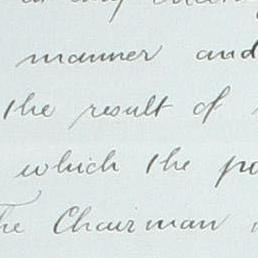 manner and
the result of
which the
The Chairman